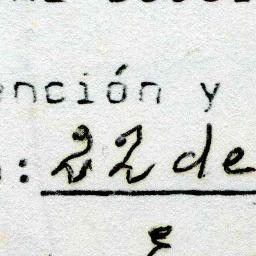 nción y
: 22 de